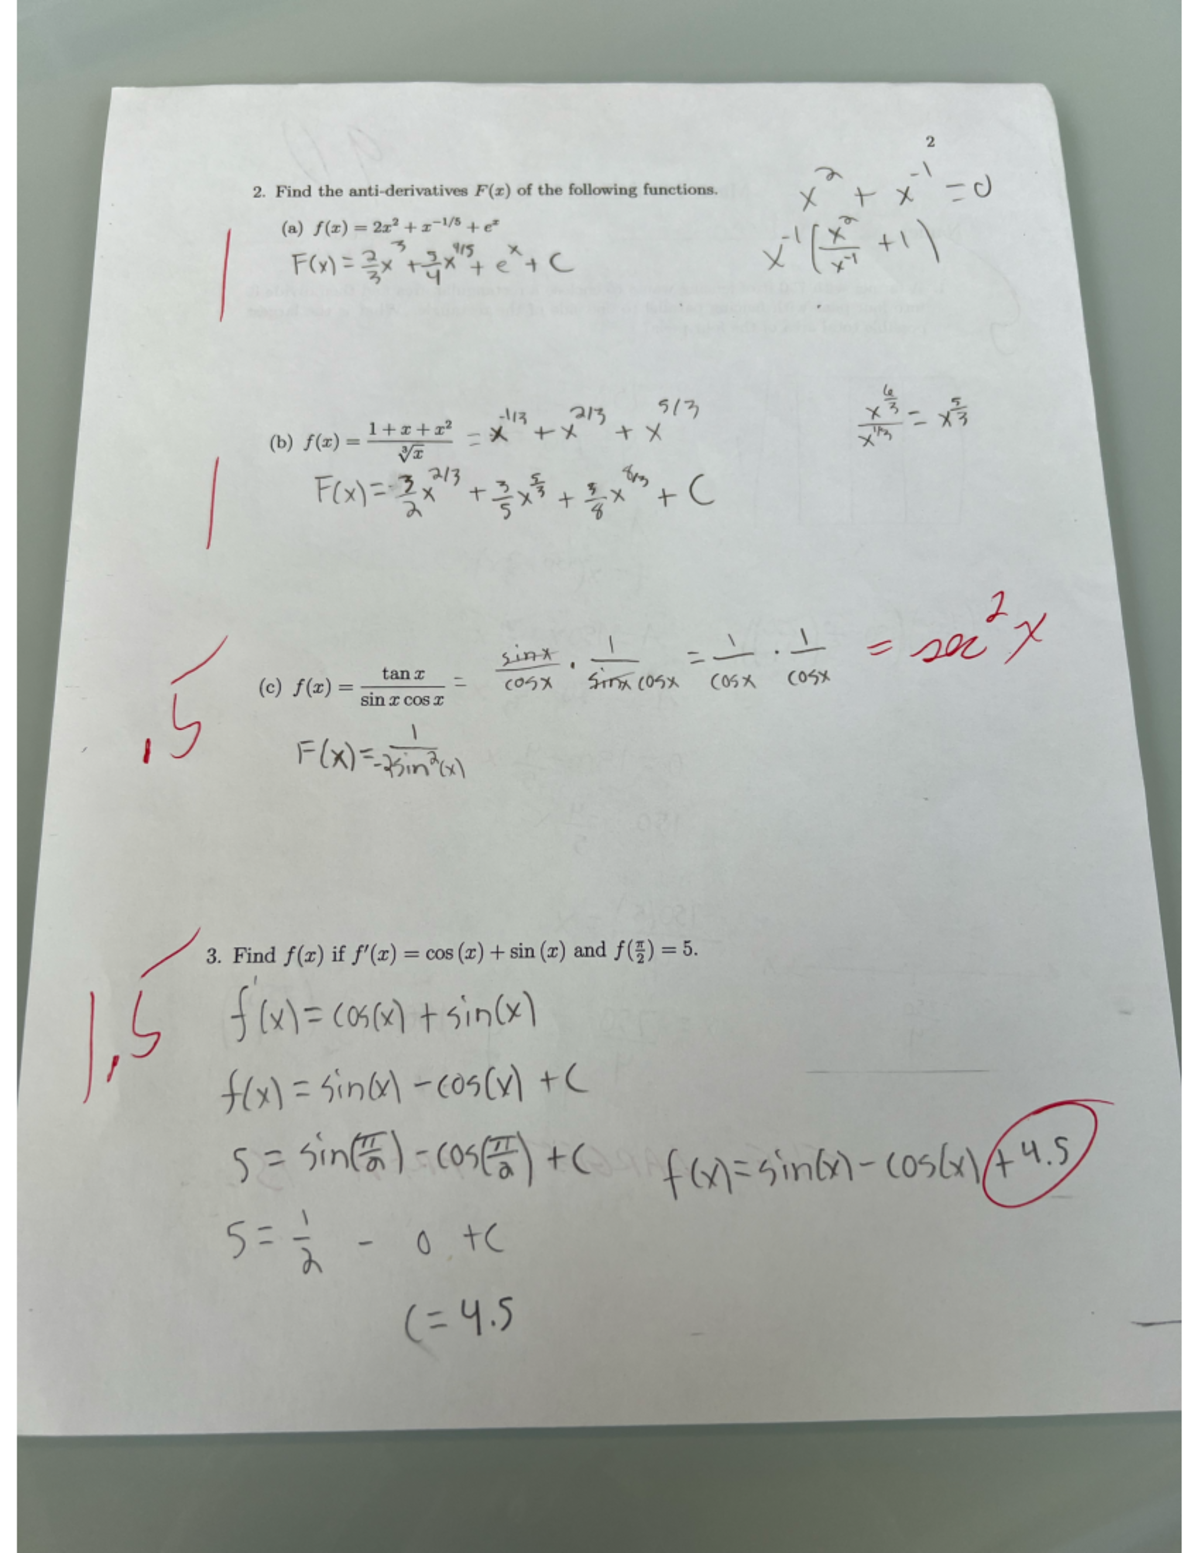 2
2. Find the anti-derivatives F(x) of the following functions.
x² + x⁻¹ = 0
(a) f(x) = 2x² + x^(−1/5) + eˣ
x⁻¹(x²/x⁻¹ + 1)
1
F(x) = 2/3 x³ + 5/4 x^(4/5) + eˣ + C
x^(6/3)/x^(1/3) = x^(5/3)
(b) f(x) = (1 + x + x²)/∛x = x^(-1/3) + x^(2/3) + x^(5/3)
1
F(x) = 3/2 x^(2/3) + 3/5 x^(5/3) + 3/8 x^(8/3) + C
(c) f(x) = tan x/(sin x cos x) = sinx/cosx · 1/(sinx cosx) = 1/cosx · 1/cosx = sec²x
.5
F(x) = 1/(-2sin²(x))
3. Find f(x) if f′(x) = cos (x) + sin (x) and f(π/2) = 5.
1.5
f'(x) = cos(x) + sin(x)
f(x) = sin(x) - cos(x) + C
5 = sin(π/2) - cos(π/2) + C
f(x) = sin(x) - cos(x) + 4.5
5 = 1/2 - 0 + C
C = 4.5